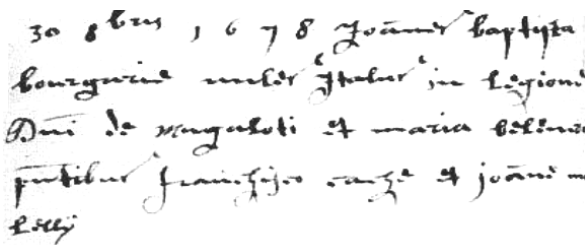 30 8bris 1678 Joannes baptista
bourgarine miles Italus in legione
Dni de magaloti et maria
pntibus franchisco et joanne
lelly